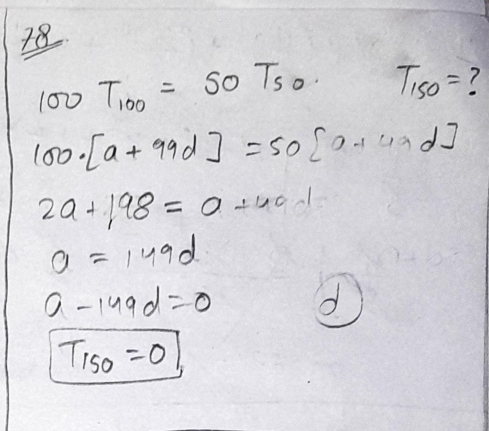 78
100 T100 = 50 T50. T150 = ?
100.[a + 99d] = 50[a + 49d]
2a + 198 = a + 49d
a = 149d
a - 149d = 0
d
T150 = 0